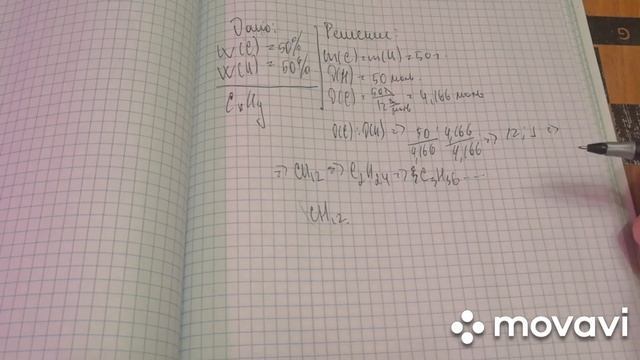 Дано:
W(C) = 50%
W(H) = 50%
CxHy
Решение:
m(C) = m(H) = 50 г.
ϑ(H) = 50 моль.
ϑ(C) = 50г / 12 г/моль = 4,166 моль
ϑ(C) : ϑ(H) => 50/4,166 : 4,166/4,166 => 12 : 1 =>
=> CH12 => C2H24 => C3H36 ...
CH12.
movavi